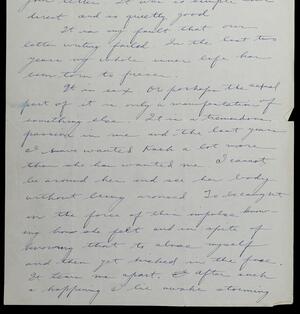 your letter. It was so simple and
direct and so quietly good.
It is my fault that our
letter writing failed. In the last two
years my whole inner life has
been torn to pieces.
It is sex. Or perhaps the sexual
part of it is only a manifestation of
something else. It is a tremendous
passion in me and the last years
I have wanted Nash a lot more
than she has wanted me. I cannot
be around her and see her body
without being aroused. To be caught
in the force of this impulse know-
ing how she felt and in spite of
knowing that to abase myself
and then get kicked in the face.
It tears me apart. After such
a happening I lie awake storming